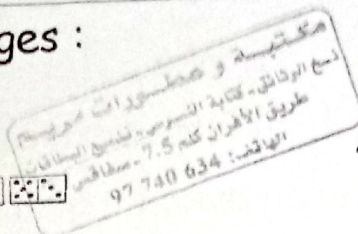 ges :
مكتبة و مطبوعات مريم
نسخ الوثائق - كتابة النصوص - تلحيم البطاقات
طريق الأفران كلم 7.5 - صفاقس
الهاتف : 97 740 634